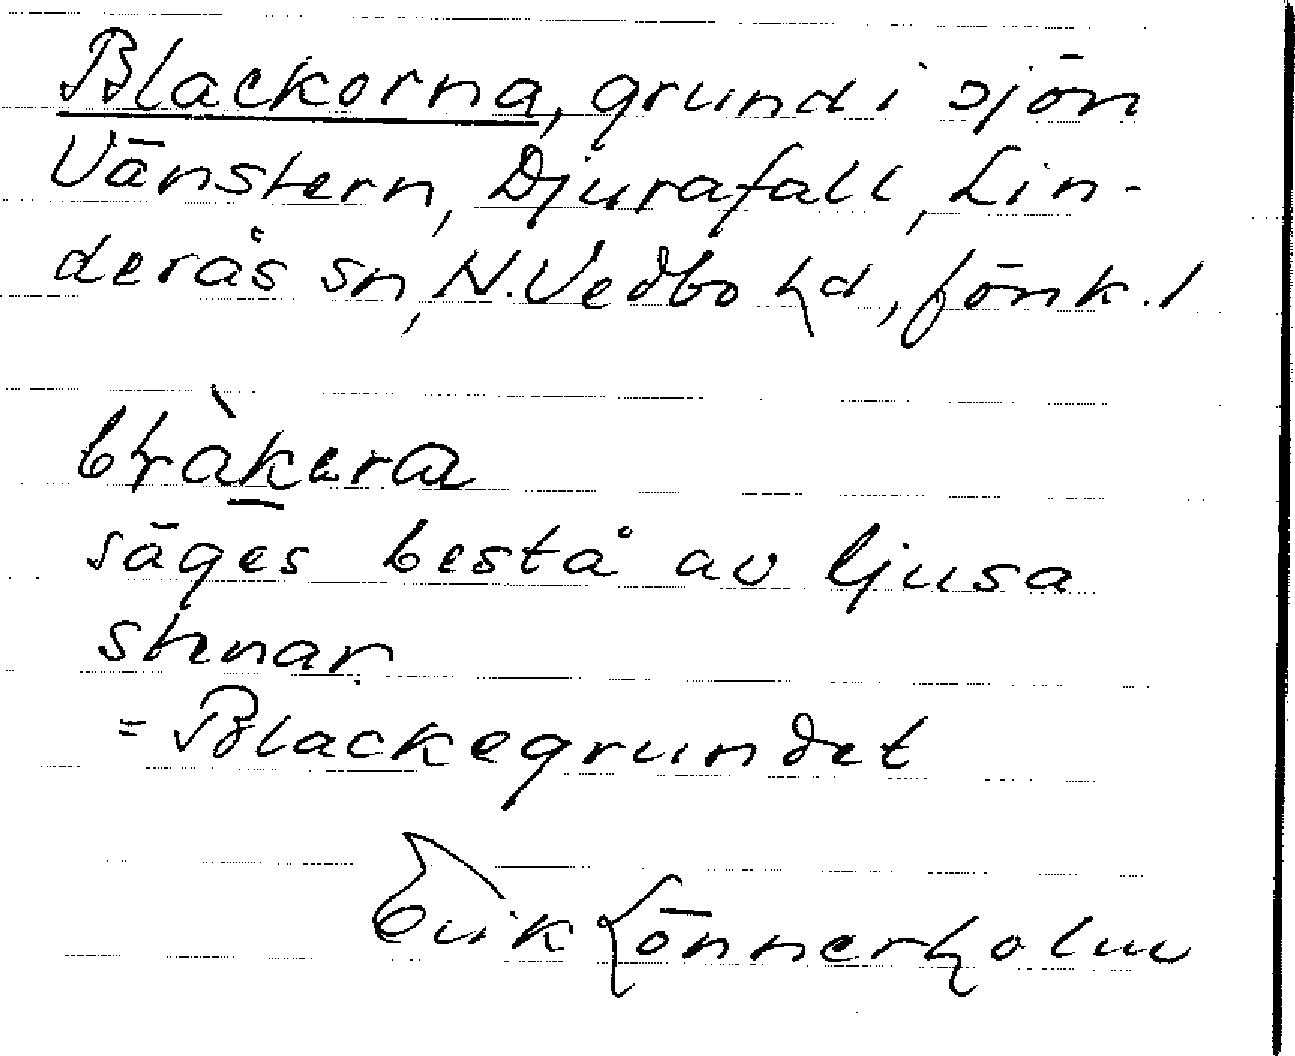 Blackorna, grund i sjön
Vänstern, Djurafall, Lin-
derås sn, N. Vedbo hd, Jönk. l
säges bestå av ljusa
stenar
= Blackegrundet
Erik Lönnerholm